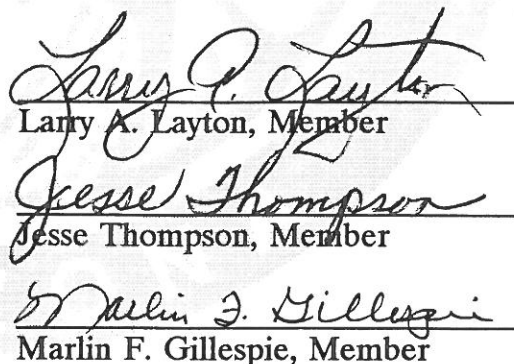 Larry A. Layton
Larry A. Layton, Member
Jesse Thompson
Jesse Thompson, Member
Marlin F. Gillespie
Marlin F. Gillespie, Member